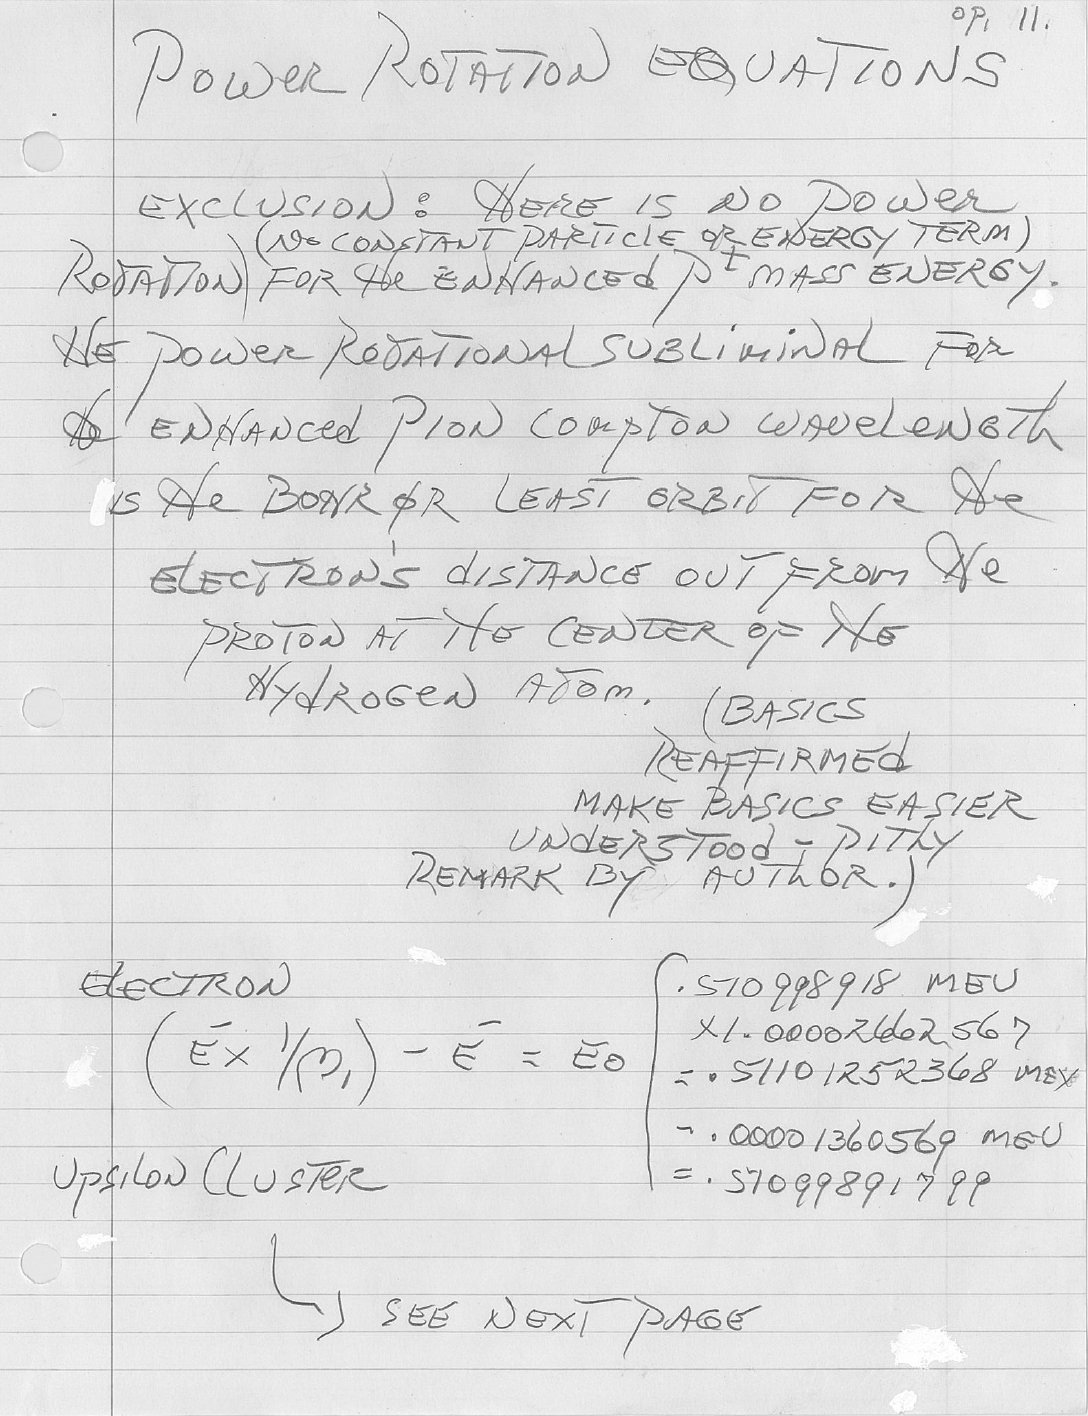 op. 11.
POWER ROTATION EQUATIONS
EXCLUSION: THERE IS NO POWER
(NO CONSTANT PARTICLE OR ENERGY TERM)
ROTATION) FOR THE ENHANCED P± MASS ENERGY.
THE POWER ROTATIONAL SUBLIMINAL FOR
THE ENHANCED PION COMPTON WAVELENGTH
IS THE BOHR OR LEAST ORBIT FOR THE
ELECTRON'S DISTANCE OUT FROM THE
PROTON AT THE CENTER OF THE
HYDROGEN ATOM.
(BASICS
REAFFIRMED
MAKE BASICS EASIER
UNDERSTOOD - PITHY
REMARK BY AUTHOR.)
ELECTRON
(E⁻ x 1/η₁) - E⁻ = E₀
.510998918 MEV
X1.00002662567
= .51101252368 MEV
- .00001360569 MEV
= .51099891799
UPSILON CLUSTER
SEE NEXT PAGE